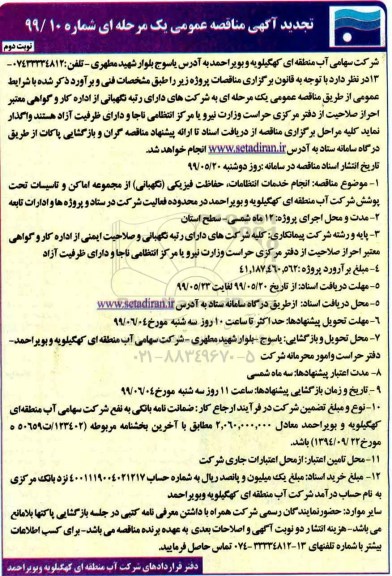 تجدید آگهی مناقصه عمومی یک مرحله ای شماره ۱۰ / ۹۹
نوبت دوم
شرکت سهامی آب منطقه ای کهگیلویه و بویراحمد به آدرس یاسوج بلوار شهید مطهری - تلفن: ۰۷۴۳۳۳۳۴۸۱۲-
۱۳ در نظر دارد با توجه به قانون برگزاری مناقصات پروژه زیر را طبق مشخصات فنی و برآورد ذکر شده با شرایط
عمومی از طریق مناقصه عمومی یک مرحله ای به شرکت های دارای رتبه نگهبانی از اداره کار و گواهی معتبر
احراز صلاحیت از دفتر مرکزی حراست وزارت نیرو یا مرکز انتظامی ناجا و دارای ظرفیت آزاد هستند واگذار
نماید کلیه مراحل برگزاری مناقصه از دریافت اسناد تا ارائه پیشنهاد مناقصه گران و بازگشایی پاکات از طریق
درگاه سامانه ستاد به آدرس www.setadiran.ir انجام خواهد شد.
تاریخ انتشار اسناد مناقصه در سامانه : روز دوشنبه ۹۹/۰۵/۲۰
۱- موضوع مناقصه: انجام خدمات انتظامات، حفاظت فیزیکی (نگهبانی) از مجموعه اماکن و تاسیسات تحت
پوشش شرکت آب منطقه ای کهگیلویه و بویراحمد در محدوده فعالیت شرکت در ستاد و پروژه ها و ادارات تابعه
۲- مدت و محل اجرای پروژه: ۱۲ ماه شمسی- سطح استان
۳- پایه و رشته شرکت پیمانکاری: کلیه شرکت های دارای رتبه نگهبانی و صلاحیت ایمنی از اداره کار و گواهی
معتبر احراز صلاحیت از دفتر مرکزی حراست وزارت نیرو یا مرکز انتظامی ناجا و دارای ظرفیت آزاد
۴- مبلغ برآورد پروژه: ۴۱,۱۸۷,۴۶۰,۵۶۲
۵- مهلت دریافت اسناد: از تاریخ ۹۹/۰۵/۲۰ لغایت ۹۹/۰۵/۲۳
۵- محل دریافت اسناد: از طریق درگاه سامانه ستاد به آدرس www.setadiran.ir
۶- مهلت تحویل پیشنهادها: حداکثر تا ساعت ۱۰ روز سه شنبه مورخ ۹۹/۰۶/۰۴
۷- محل تحویل و بازگشایی: یاسوج -بلوار شهید مطهری- شرکت سهامی آب منطقه ای کهگیلویه و بویراحمد-
دفتر حراست و امور محرمانه شرکت
۸- مدت اعتبار پیشنهادها: سه ماه شمسی
۹- تاریخ و زمان بازگشایی پیشنهادها: ساعت ۱۱ روز سه شنبه مورخ ۹۹/۰۶/۰۴
۱۰- نوع و مبلغ تضمین شرکت در فرآیند ارجاع کار : ضمانت نامه بانکی به نفع شرکت سهامی آب منطقه‌ای
کهگیلویه و بویراحمد معادل ۲,۰۶۰,۰۰۰,۰۰۰ مطابق با آخرین بخشنامه مربوطه (۱۲۳۴۰۲/ت۵۰۶۵۹ ه
مورخ ۱۳۹۴/۰۹/۲۲) باشد.
۱۱- محل تامین اعتبار: از محل اعتبارات جاری شرکت
۱۲- مبلغ خرید اسناد: مبلغ یک میلیون و پانصد ریال به شماره حساب ۴۰۰۱۱۱۹۰۰۴۰۲۱۲۱۷ نزد بانک مرکزی
به نام حساب درآمد شرکت آب منطقه ای کهگیلویه و بویراحمد
سایر موارد: حضور نمایندگان رسمی شرکت همراه با داشتن معرفی نامه کتبی در جلسه بازگشایی پاکتها بلامانع
می باشد- هزینه انتشار دو نوبت آگهی و اصلاحات بعدی به عهده برنده مناقصه می باشد- برای کسب اطلاعات
بیشتر با شماره تلفنهای ۱۳-۳۳۳۳۴۸۱۲-۰۷۴ تماس حاصل فرمایید.
دفتر قراردادهای شرکت آب منطقه ای کهگیلویه و بویراحمد
۰۲۱-۸۸۳۴۹۶۷۰-۵